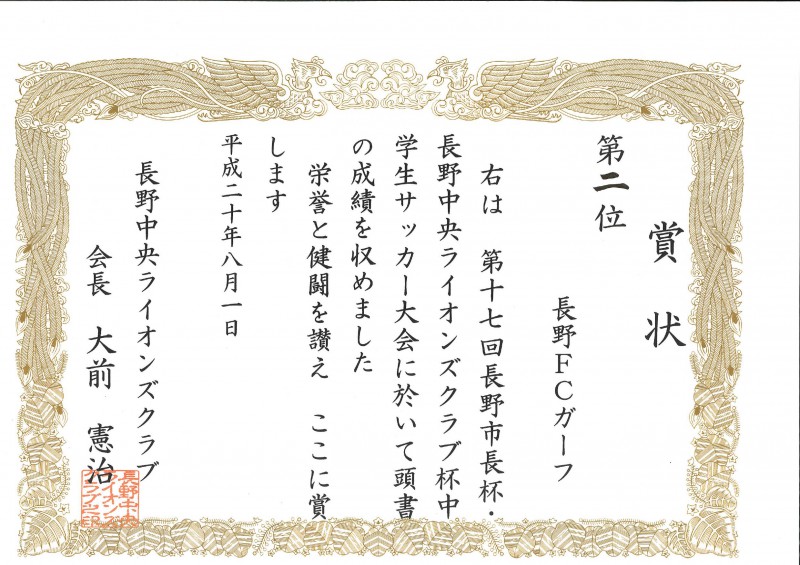 賞状
第二位
長野FCガーフ
右は 第十七回長野市長杯・
長野中央ライオンズクラブ杯中
学生サッカー大会に於いて頭書
の成績を収めました
栄誉と健闘を讃え ここに賞
します
平成二十年八月一日
長野中央ライオンズクラブ
会長 大前 憲治
長野中央
ライオンズ
クラブ